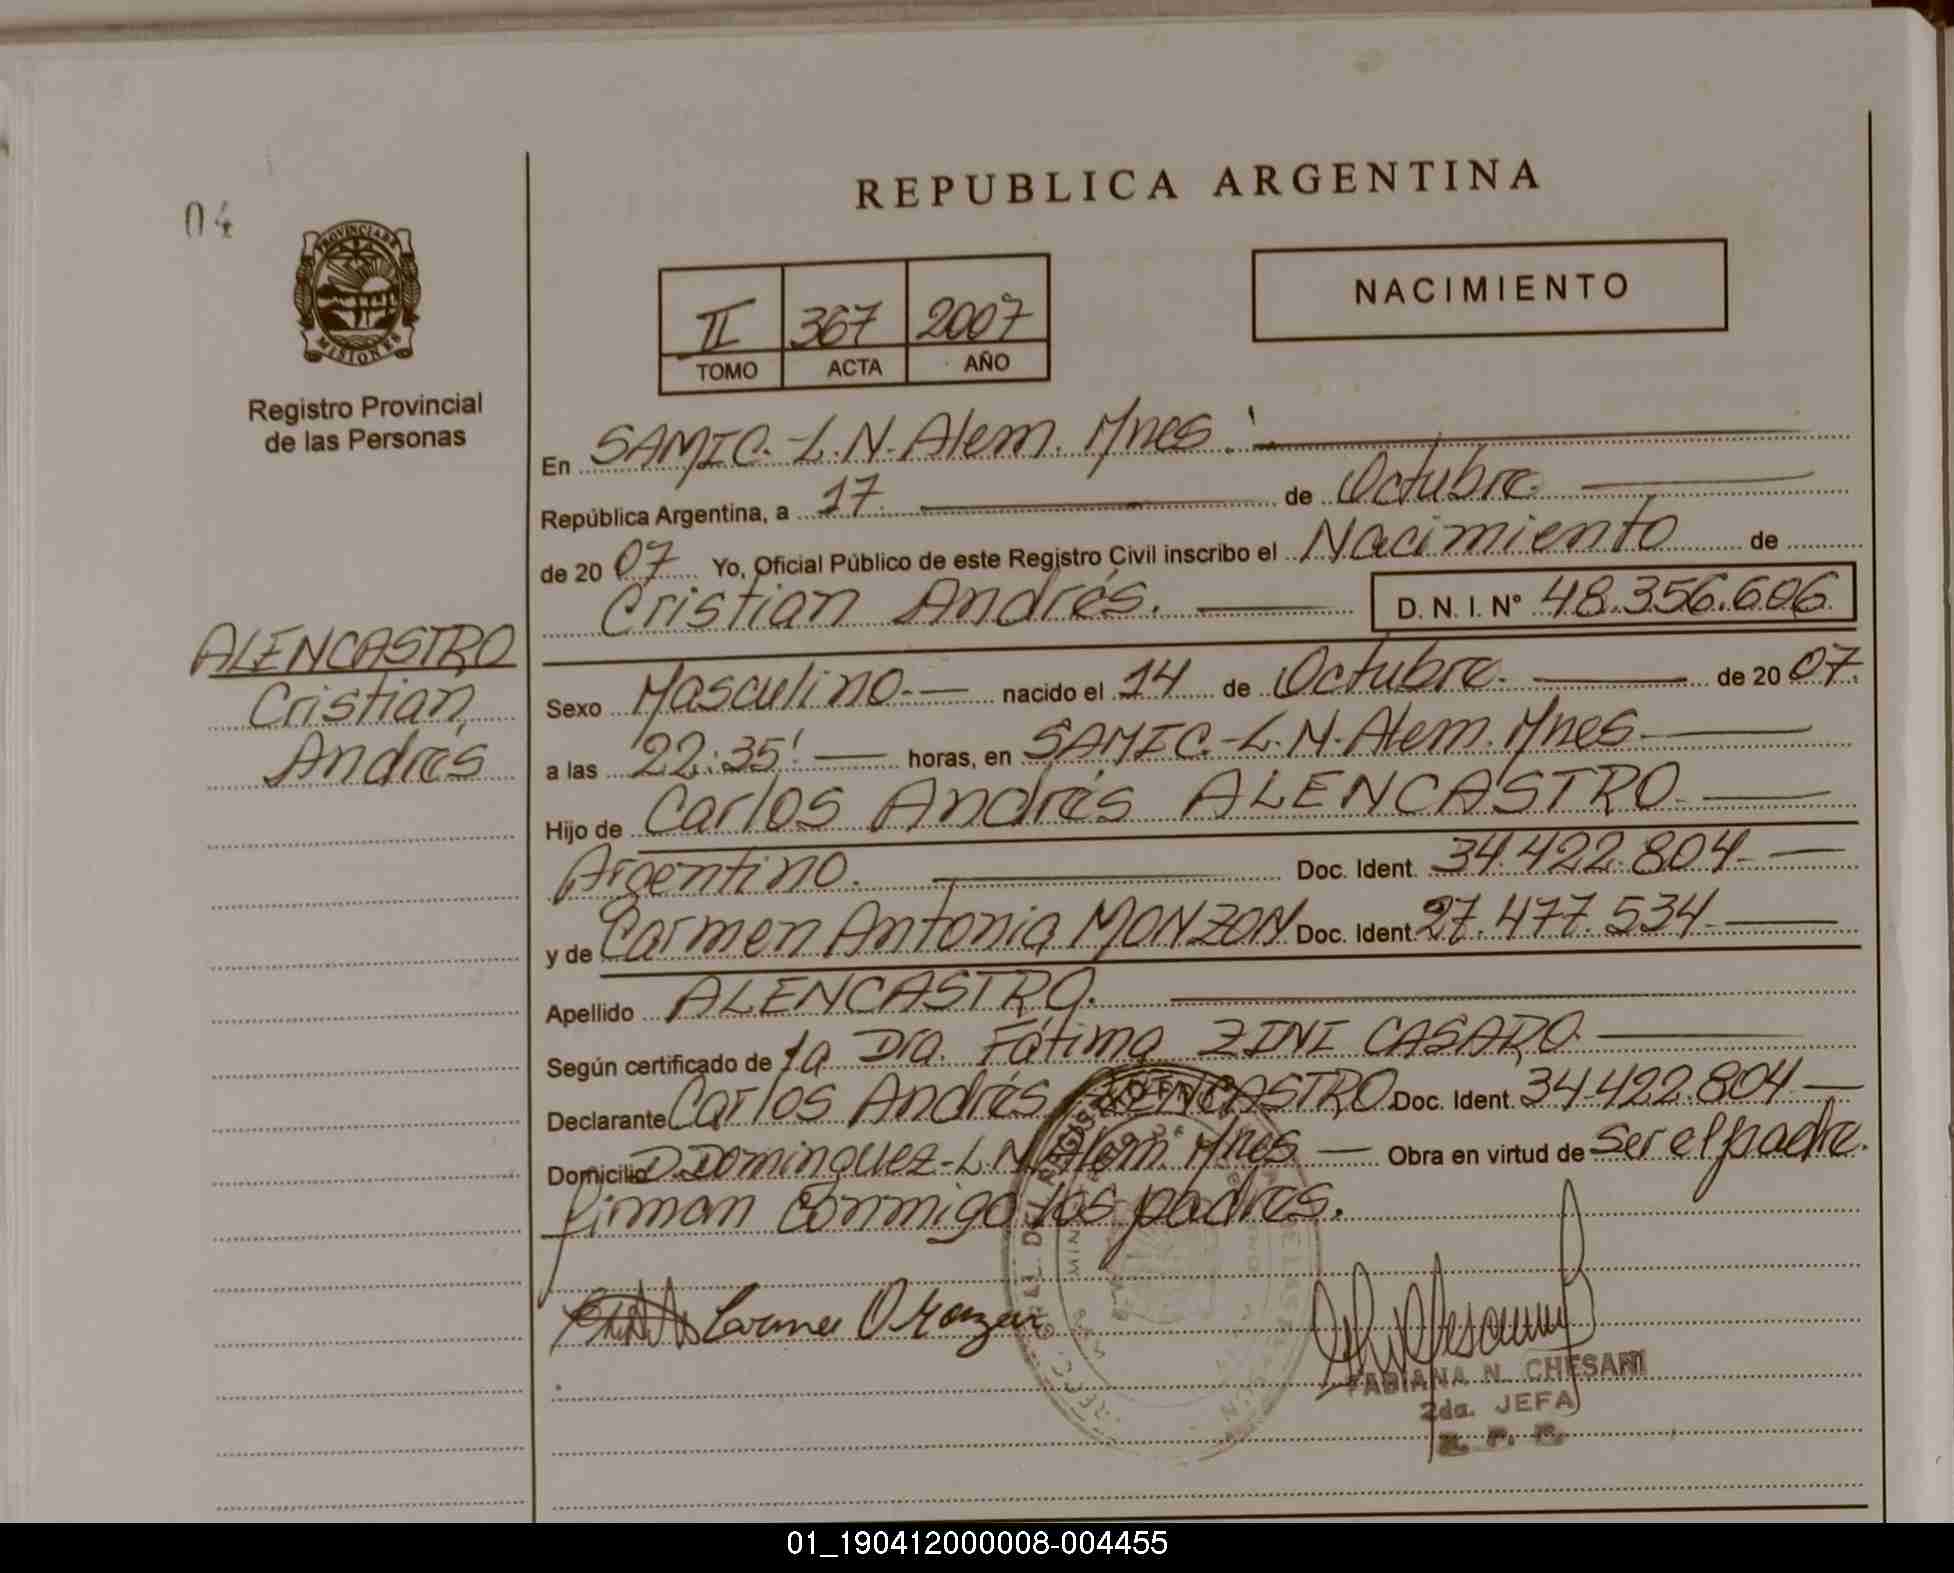 REPUBLICA ARGENTINA
04
PROVINCIA DE
MISIONES
Registro Provincial
de las Personas
II 367 2007
TOMO ACTA AÑO
NACIMIENTO
En SAMIC.-L.N.Alem. Mnes.
República Argentina, a 17. de Octubre.
de 20 07 Yo, Oficial Público de este Registro Civil inscribo el Nacimiento de
Cristian Andrés. D. N. I. N° 48.356.606
ALENCASTRO
Cristian
Andrés
Sexo Masculino.- nacido el 14 de Octubre. de 20 07.
a las 22:35' horas, en SAMIC.-L.N.Alem. Mnes.
Hijo de Carlos Andrés ALENCASTRO.
Argentino. Doc. Ident. 34.422.804.-
y de Carmen Antonia MONZON Doc. Ident. 27.477.534.
Apellido ALENCASTRO.
Según certificado de la Dra. Fátima ZINI CASADO.
Declarante Carlos Andrés ALENCASTRO. Doc. Ident. 34.422.804-
Domicilio D.Dominguez-L.N.Alem. Mnes. Obra en virtud de ser el padre.
firman conmigo los padres.
FABIANA N. CHESANI
2da. JEFA
R. P. P.
01_190412000008-004455